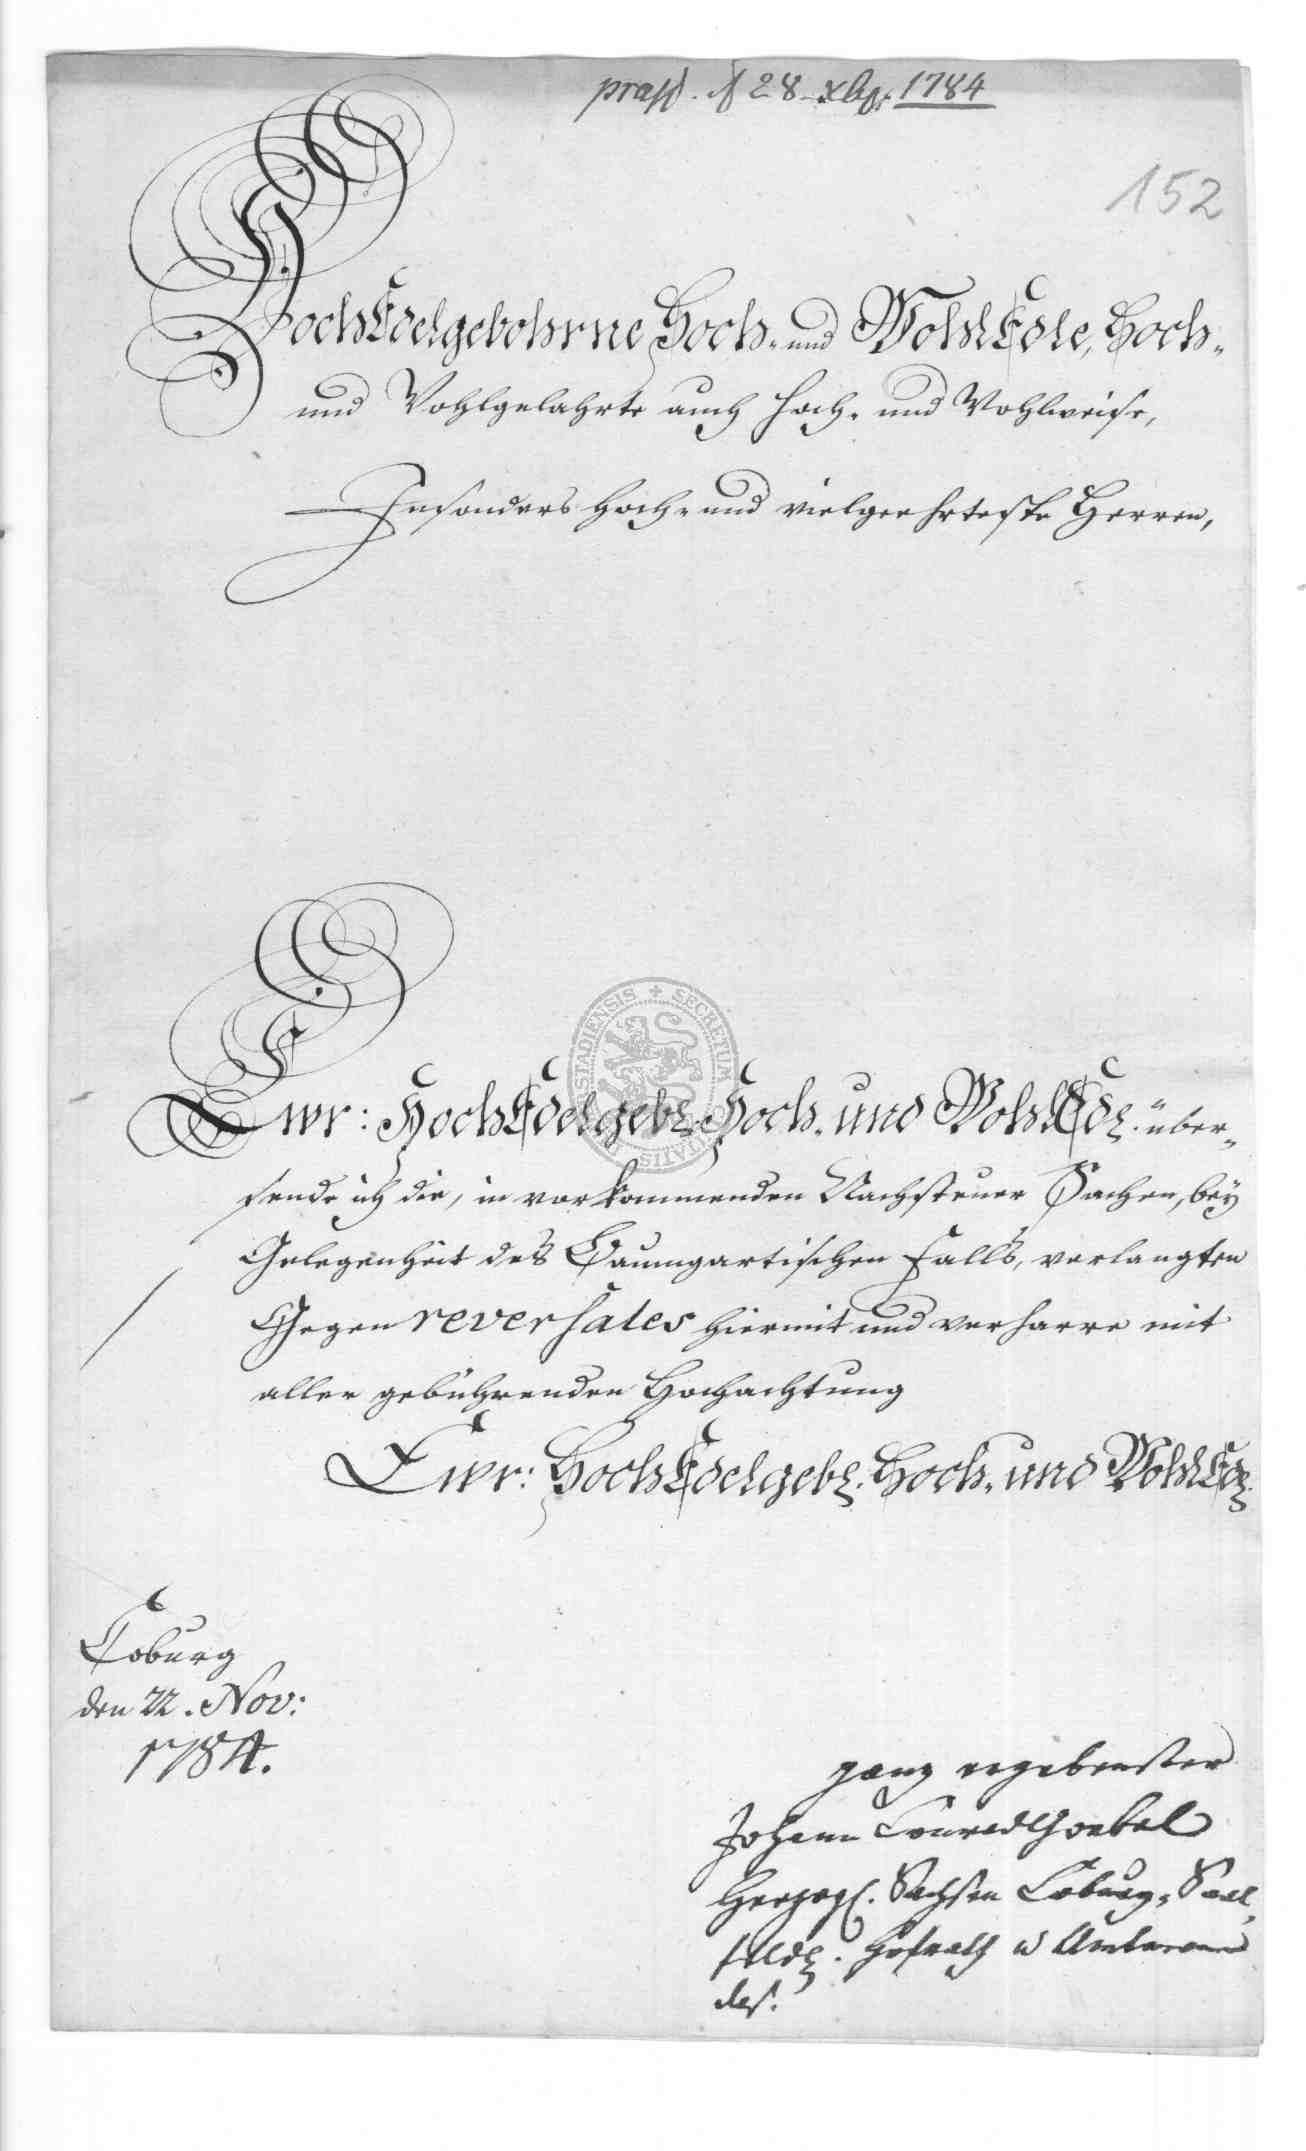 præs. d 28 xbr. 1784
152
HochEdelgebohrne Hoch- und WohlEdle, Hoch-
und Wohlgelahrte auch Hoch- und Wohlweise,
Insonders Hoch- und vielgeehrteste Herren,
Ewr: HochEdelgebl. Hoch- und WohlEdl. über-
sende ich die, in vorkommenden Nachsteuer Sachen, bey
Gelegenheit des Baumgartischen Falls, verlangten
Gegen reversales hiermit und verharre mit
aller gebührenden Hochachtung
Ewr: HochEdelgebl. Hoch- und WohlEdl.
Coburg
den 22. Nov:
1784.
ganz ergebenster
Johann Conrad Goebel
Herzogl. Sachsen Coburg-Saal-
feldl. Hofrath u Amtmann
das.
SECRETUM